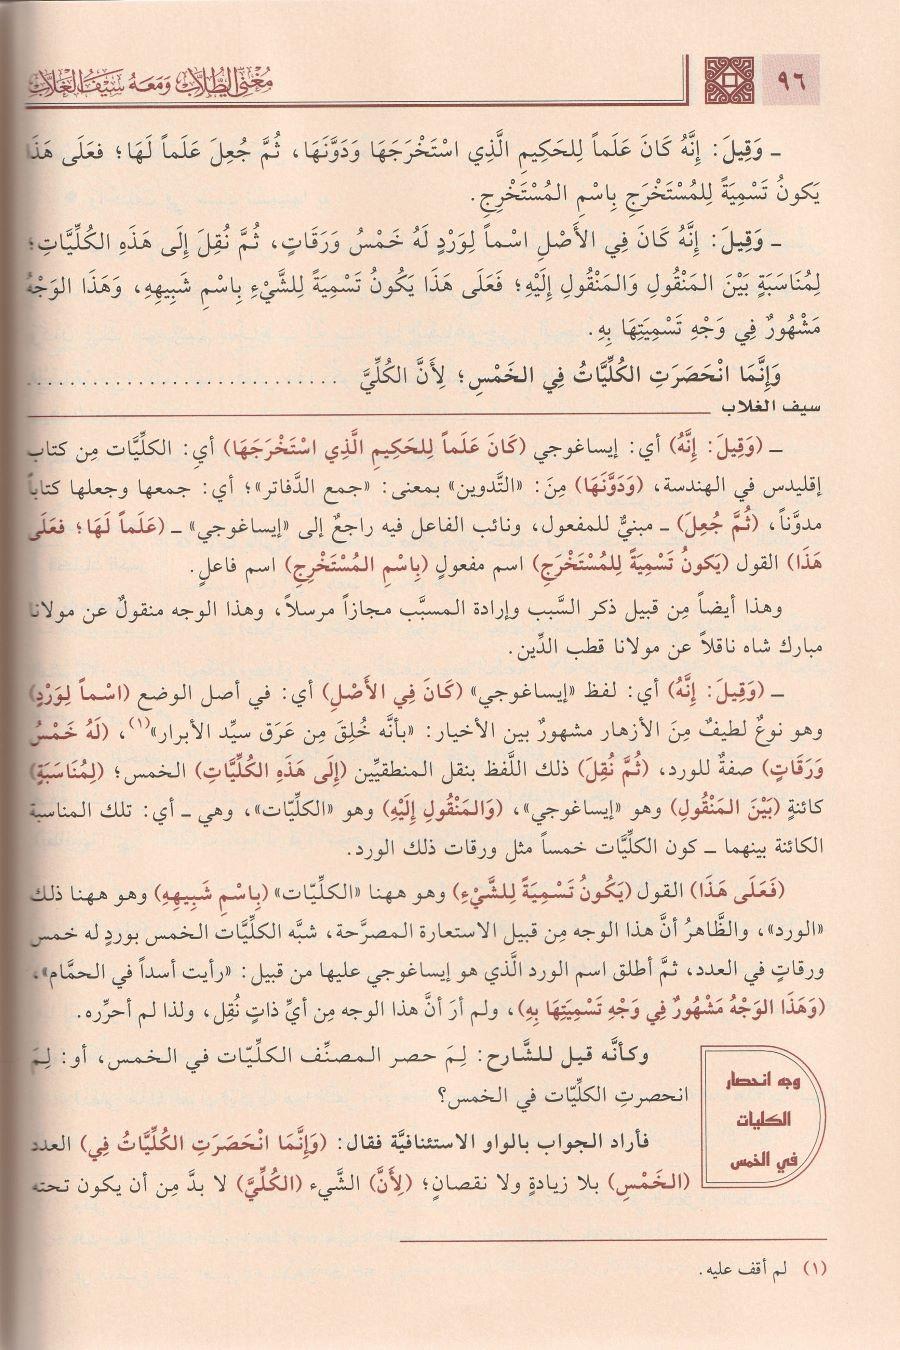 ٩٦
مُغْنِي الطُّلَّابِ وَمَعَهُ سَيْفُ الغَلَّابِ
ـ وَقِيلَ: إِنَّهُ كَانَ عَلَماً لِلحَكِيمِ الَّذِي اسْتَخْرَجَهَا وَدَوَّنَهَا، ثُمَّ جُعِلَ عَلَماً لَهَا؛ فعَلَى هَذَا
يَكونُ تَسْمِيَةً لِلمُسْتَخْرَجِ بِاسْمِ المُسْتَخْرِجِ.
ـ وَقِيلَ: إِنَّهُ كَانَ فِي الأَصْلِ اسْماً لِوَرْدٍ لَهُ خَمْسُ وَرَقَاتٍ، ثُمَّ نُقِلَ إِلَى هَذِهِ الكُلِّيَّاتِ؛
لِمُنَاسَبَةٍ بَيْنَ المَنْقُولِ وَالمَنْقُولِ إِلَيْهِ؛ فَعَلَى هَذَا يَكُونُ تَسْمِيَةً لِلشَّيْءِ بِاسْمِ شَبِيهِهِ، وَهَذَا الوَجْهُ
مَشْهُورٌ فِي وَجْهِ تَسْمِيَتِهَا بِهِ.
وَإِنَّمَا انْحَصَرَتِ الكُلِّيَّاتُ فِي الخَمْسِ؛ لِأَنَّ الكُلِّيَّ ............................
سيف الغلاب
ـ (وَقِيلَ: إِنَّهُ) أي: إيساغوجي (كَانَ عَلَماً لِلحَكِيمِ الَّذِي اسْتَخْرَجَهَا) أي: الكلِّيَّات مِن كتاب
إقليدس في الهندسة، (وَدَوَّنَهَا) مِنَ: «التَّدوين» بمعنى: «جمع الدَّفاتر»؛ أي: جمعها وجعلها كتاباً
مدوَّناً، (ثُمَّ جُعِلَ) ـ مبنيٌّ للمفعول، ونائب الفاعل فيه راجعٌ إلى «إيساغوجي» ـ (عَلَماً لَهَا؛ فعَلَى
هَذَا) القول (يَكونُ تَسْمِيَةً لِلمُسْتَخْرَجِ) اسم مفعولٍ (بِاسْمِ المُسْتَخْرِجِ) اسم فاعلٍ.
وهذا أيضاً مِن قبيل ذكر السَّبب وإرادة المسبَّب مجازاً مرسلاً، وهذا الوجه منقولٌ عن مولانا
مبارك شاه ناقلاً عن مولانا قطب الدِّين.
ـ (وَقِيلَ: إِنَّهُ) أي: لفظ «إيساغوجي» (كَانَ فِي الأَصْلِ) أي: في أصل الوضع (اسْماً لِوَرْدٍ)
وهو نوعٌ لطيفٌ مِنَ الأزهار مشهورٌ بين الأخيار: «بأنَّه خُلِقَ مِن عَرَق سيِّد الأبرار»(١)، (لَهُ خَمْسُ
وَرَقَاتٍ) صفةٌ للورد، (ثُمَّ نُقِلَ) ذلك اللَّفظ بنقل المنطقيِّين (إِلَى هَذِهِ الكُلِّيَّاتِ) الخمس؛ (لِمُنَاسَبَةٍ)
كائنةٍ (بَيْنَ المَنْقُولِ) وهو «إيساغوجي»، (وَالمَنْقُولِ إِلَيْهِ) وهو «الكليّات»، وهي ـ أي: تلك المناسبة
الكائنة بينهما ـ كون الكلِّيَّات خمساً مثل ورقات ذلك الورد.
(فَعَلَى هَذَا) القول (يَكُونُ تَسْمِيَةً لِلشَّيْءِ) وهو ههنا «الكليّات» (بِاسْمِ شَبِيهِهِ) وهو ههنا ذلك
«الورد»، والظَّاهرُ أنَّ هذا الوجه مِن قبيل الاستعارة المصرَّحة، شبَّه الكلِّيَّات الخمس بوردٍ له خمس
ورقاتٍ في العدد، ثمَّ أطلق اسم الورد الَّذي هو إيساغوجي عليها من قبيل: «رأيت أسداً في الحمَّام»،
(وَهَذَا الوَجْهُ مَشْهُورٌ فِي وَجْهِ تَسْمِيَتِهَا بِهِ)، ولم أرَ أنَّ هذا الوجه مِن أيِّ ذاتٍ نُقِل، ولذا لم أحرِّره.
وجه انحصار
الكليات
في الخمس
وكأنَّه قيل للشَّارح: لِمَ حصر المصنِّف الكلِّيّات في الخمس، أو: لِمَ
انحصرتِ الكلِّيّات في الخمس؟
فأراد الجواب بالواو الاستئنافيَّة فقال: (وَإِنَّمَا انْحَصَرَتِ الكُلِّيَّاتُ فِي) العدد
(الخَمْسِ) بلا زيادةٍ ولا نقصانٍ؛ (لِأَنَّ) الشَّيء (الكُلِّيَّ) لا بدَّ مِن أن يكون تحته
(١) لم أقف عليه.